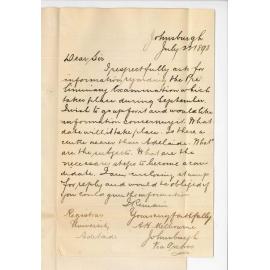 Johnsburgh
July 22 1893
Dear Sir
I respectfully ask for
information regarding the Pre
liminary Examination which
takes place during September.
I wish to go up for it and would like
information concerning it. What
date will it take place. Is there a
centre nearer than Adelaide. What
are the subjects. What are the
necessary steps to become a can
didate. I am enclosing stamp
for reply and would be obliged if
you could give the information
I Remain
Yours very faithfully
Registrar
University
Adelaide
A H Melbourne
Johnsburgh
Via Orroroo